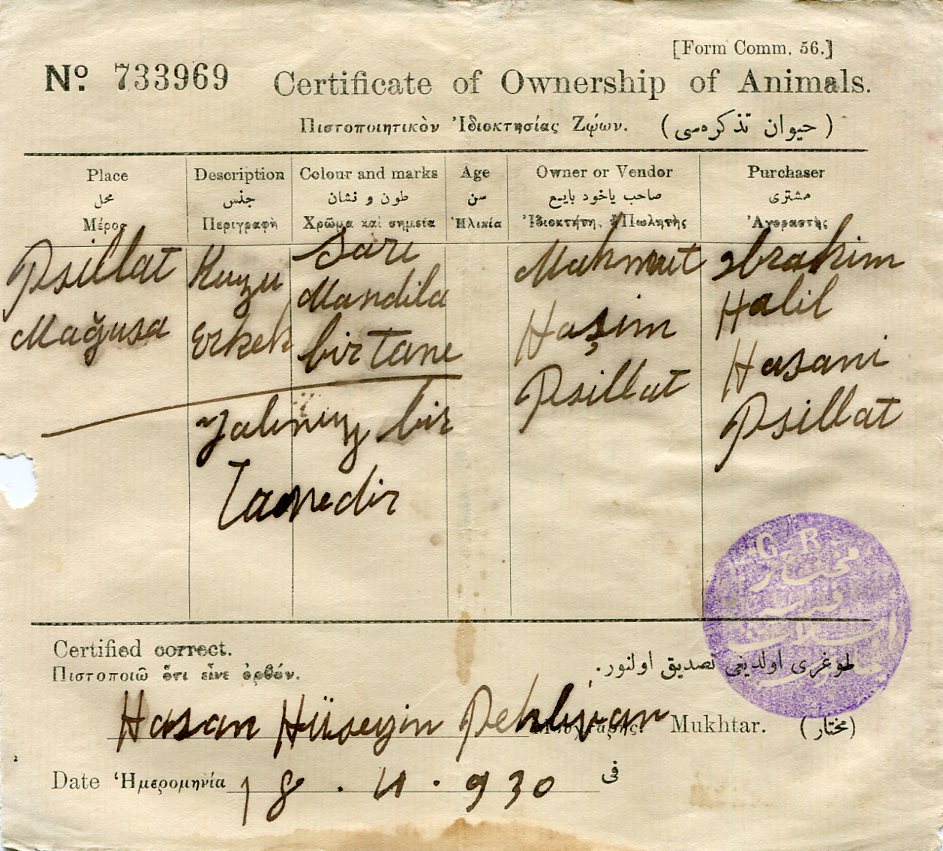 [Form Comm. 56.]
Nº 733969 Certificate of Ownership of Animals.
Πιστοποιητικὸν Ἰδιοκτησίας Ζῴων. (حيوان تذكره‌سى)
Place Description Colour and marks Age Owner or Vendor Purchaser
محل جنس طون و نشان سن صاحب ياخود بايع مشترى
Μέρος Περιγραφὴ Χρῶμα καὶ σημεῖα Ἡλικία Ἰδιοκτήτη, ἢ Πωλητὴς Ἀγοραστὴς
Psillat Kuzu Sarı Mahmut Ibrahim
Mağusa Erkek Mandila Haşim Halil
bir tane Psillat Hasani
Yalınız bir Psillat
Tanedir
G R
مختار
Certified correct.
Πιστοποιῶ ὅτι εἶνε ὀρθόν. طوغرى اولديغى تصديق اولنور.
Hasan Hüseyin Pehlivan Μουχτάρης. Mukhtar. (مختار)
Date Ἡμερομηνία 18 . 4 . 930 فى